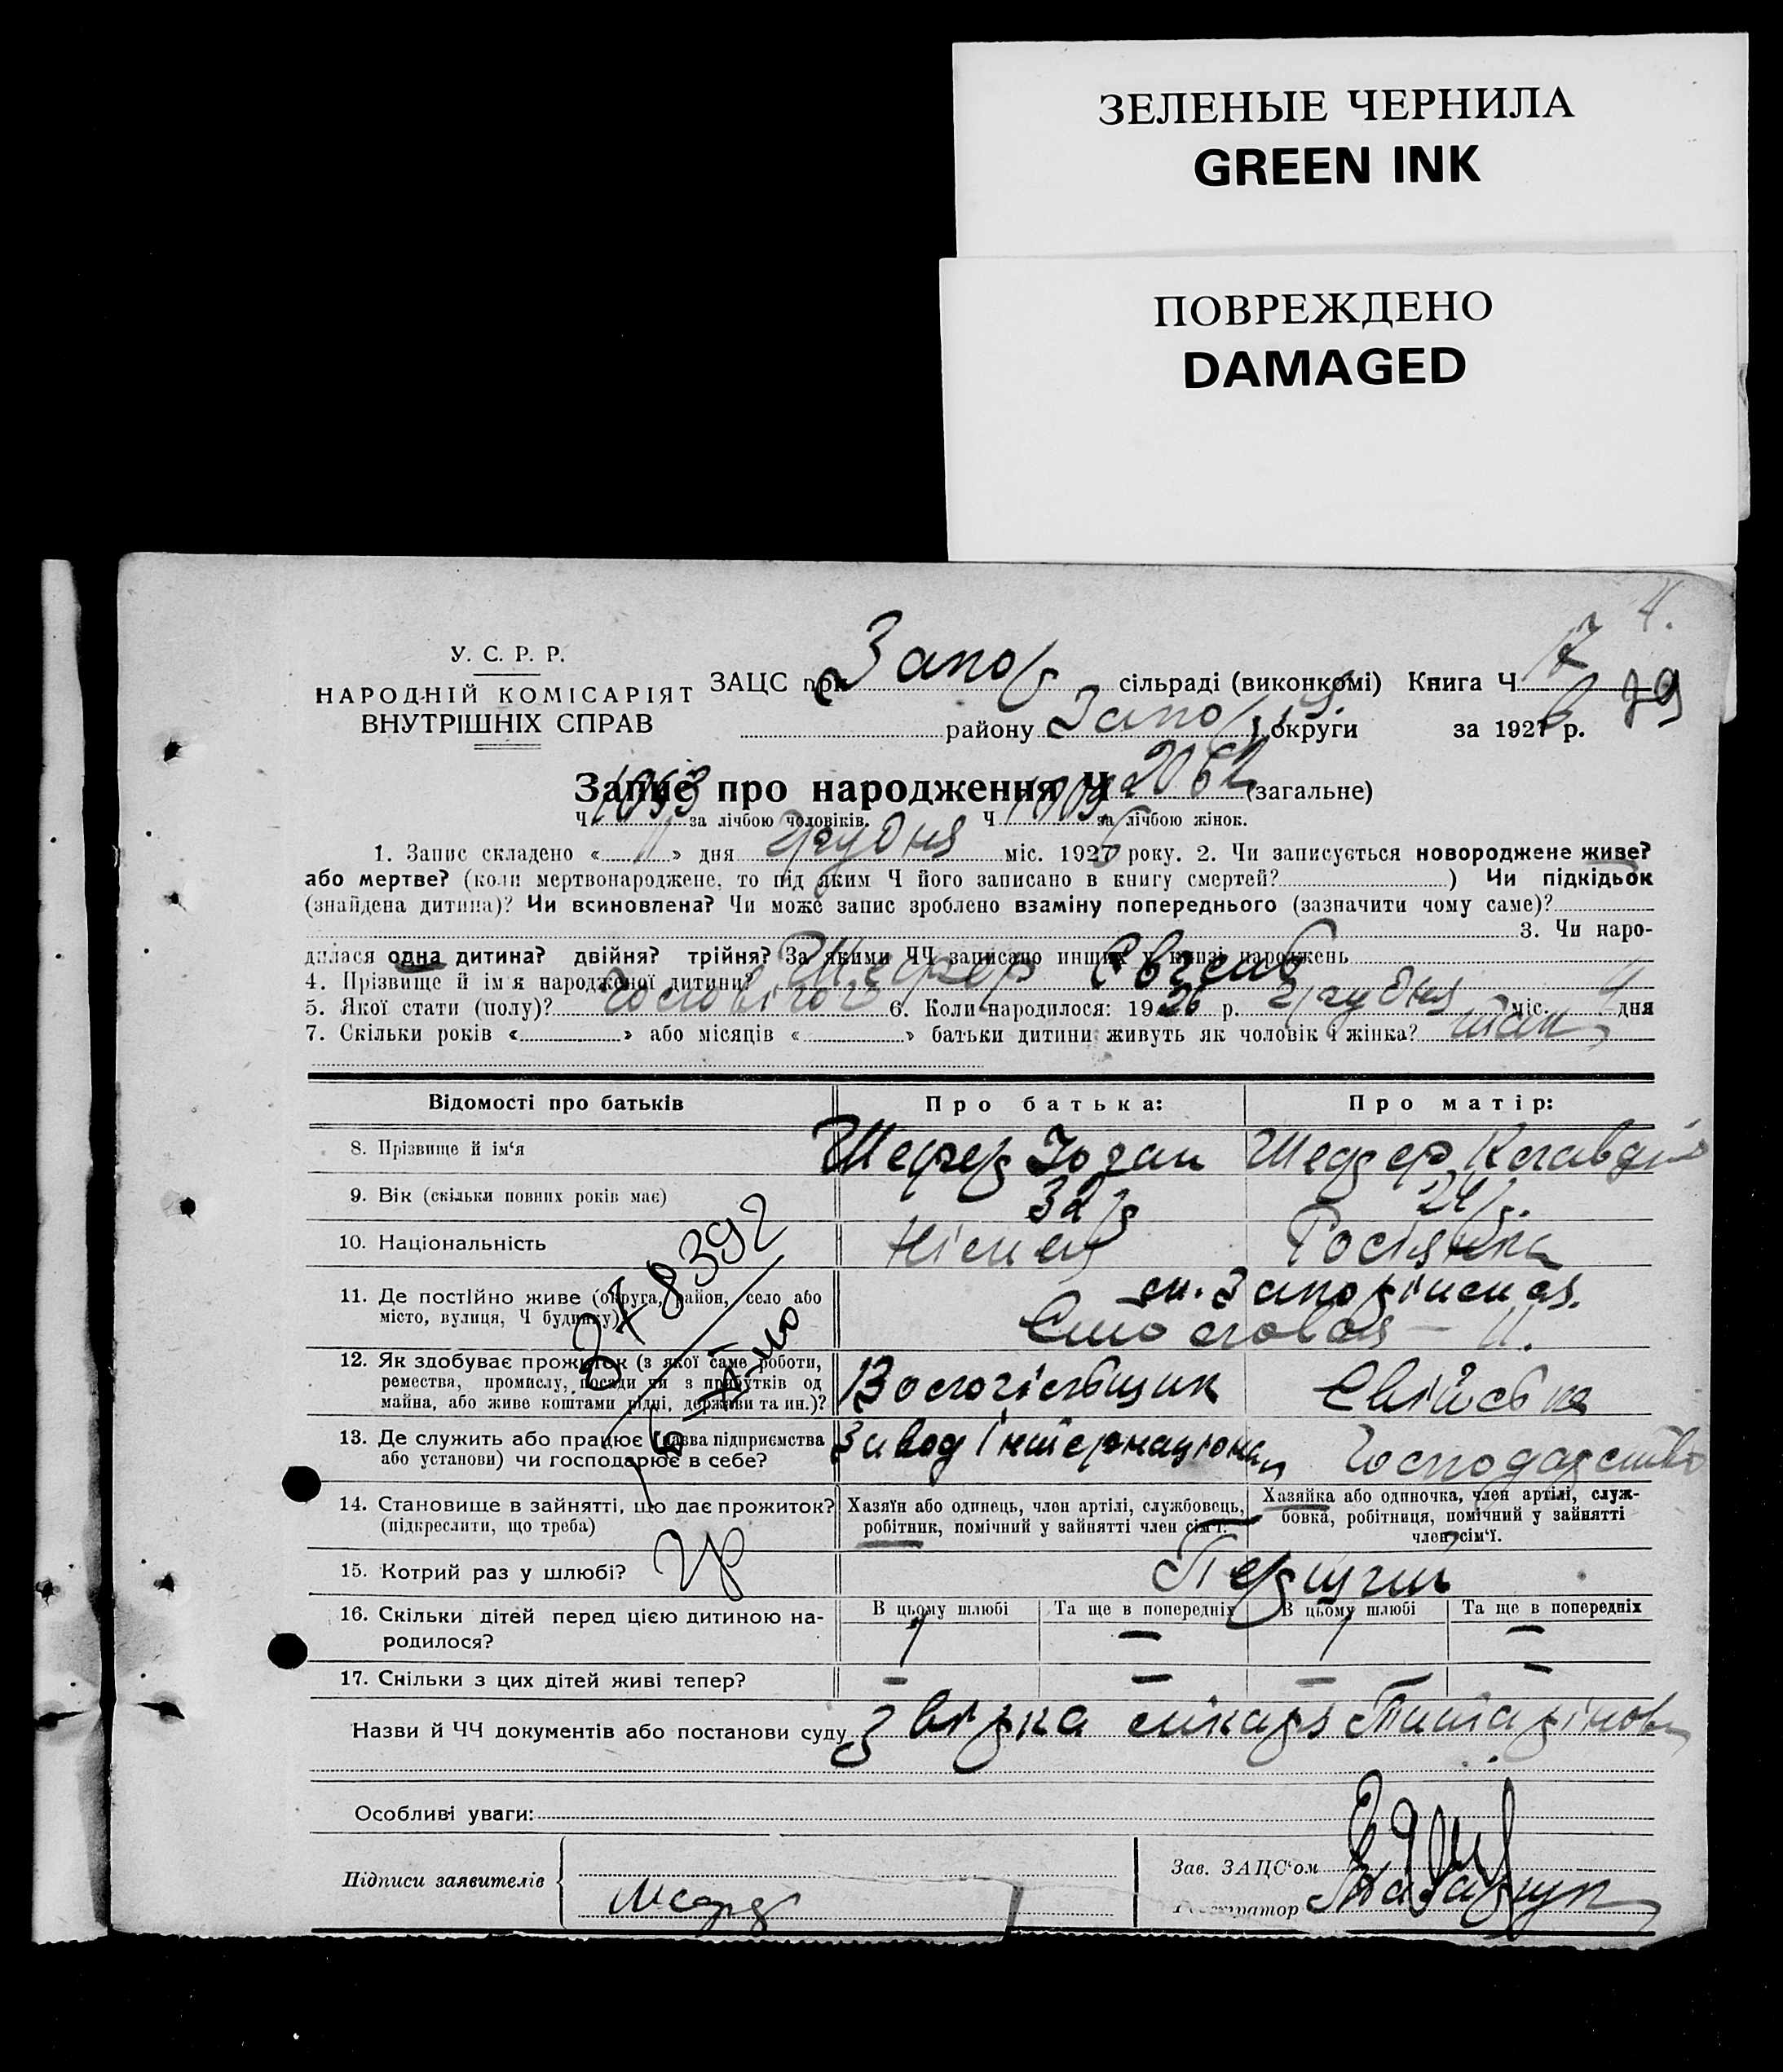 ЗЕЛЕНЫЕ ЧЕРНИЛА
GREEN INK
ПОВРЕЖДЕНО
DAMAGED
4.
У. С. Р. Р.
НАРОДНІЙ КОМІСАРІЯТ
ВНУТРІШНІХ СПРАВ
ЗАЦС при Запор сільраді (виконкомі) Книга Ч 17
79
району Запор округи за 1926 р.
Запис про народження Ч 2062 (загальне)
Ч 1053 за лічбою чоловіків. Ч 1009 за лічбою жінок.
1. Запис складено « 11 » дня грудня міс. 1926 року. 2. Чи записується новороджене живе?
або мертве? (коли мертвонароджене, то під яким Ч його записано в книгу смертей? ) Чи підкідьок
(знайдена дитина)? Чи всиновлена? Чи може запис зроблено взаміну попереднього (зазначити чому саме)?
3. Чи наро-
дилася одна дитина? двійня? трійня? За якими ЧЧ записано инших у книзі народжень
4. Прізвище й ім'я народженої дитини? Шефер Євгеній
5. Якої стати (полу)? чоловічого 6. Коли народилося: 1926 р. грудня міс. 4 дня
7. Скільки років « » або місяців « » батьки дитини живуть як чоловік і жінка? так
Відомості про батьків Про батька: Про матір:
8. Прізвище й ім'я Шефер Йоган Шефер Клавдія
9. Вік (скільки повних років має) 32 р 24 р.
10. Національність Німець Росіянка
11. Де постійно живе (округа, район, село або
місто, вулиця, Ч будинку) м. Запоріжжя.
12. Як здобуває прожиток (з якої саме роботи,
ремества, промислу, посади чи з прибутків од
майна, або живе коштами рідні, держави та ин.)?
13. Де служить або працює (назва підприємства
або установи) чи господарює в себе? Завод Інтернаціонал Господарство
14. Становище в зайнятті, що дає прожиток?
(підкреслити, що треба)
Хазяїн або одинець, член артілі, службовець,
робітник, помічний у зайнятті член сім'ї.
Хазяйка або одиночка, член артілі, служ-
бовка, робітниця, помічний у зайнятті
член сім'ї.
15. Котрий раз у шлюбі? Перший
16. Скільки дітей перед цією дитиною на-
родилося?
В цьому шлюбі Та ще в попередніх В цьому шлюбі Та ще в попередніх
1 — 1 —
17. Скільки з цих дітей живі тепер? — — — —
378392
Назви й ЧЧ документів або постанови суду
Особливі уваги:
Підписи заявителів
Зав. ЗАЦС'ом
Реєстратор